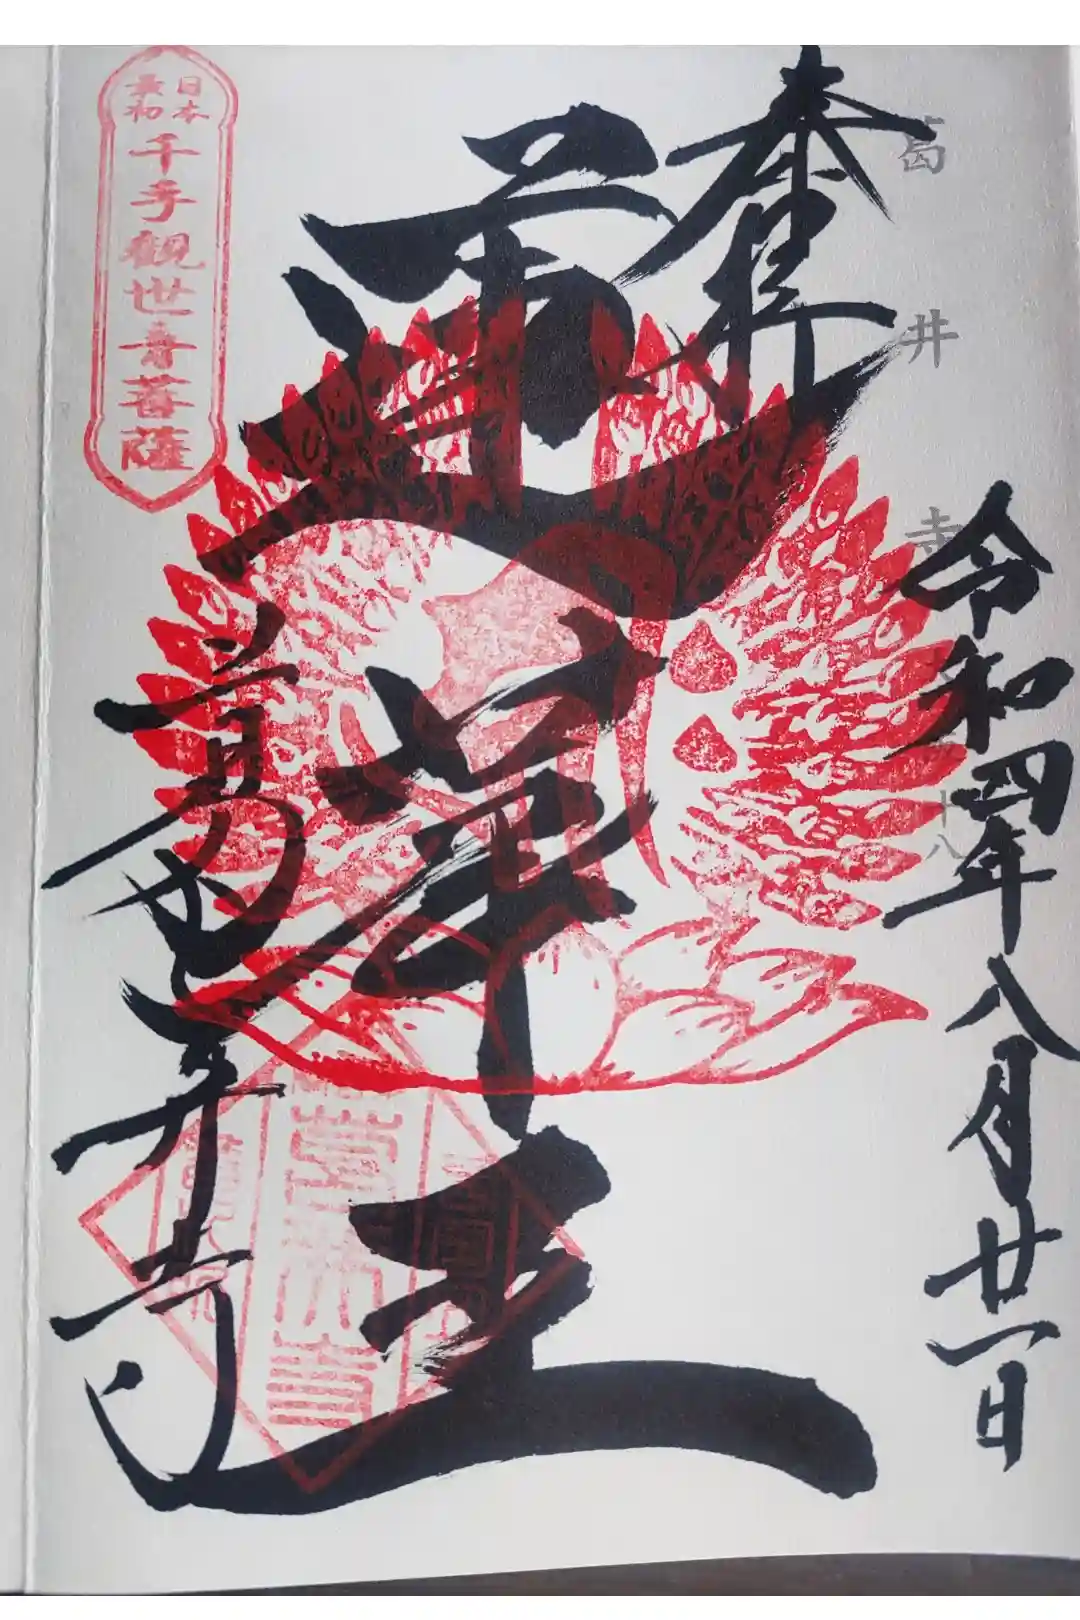 葛井寺
十八
奉拝
令和四年八月廿一日
蓮華王
葛井寺
日本最初
千手観世音菩薩